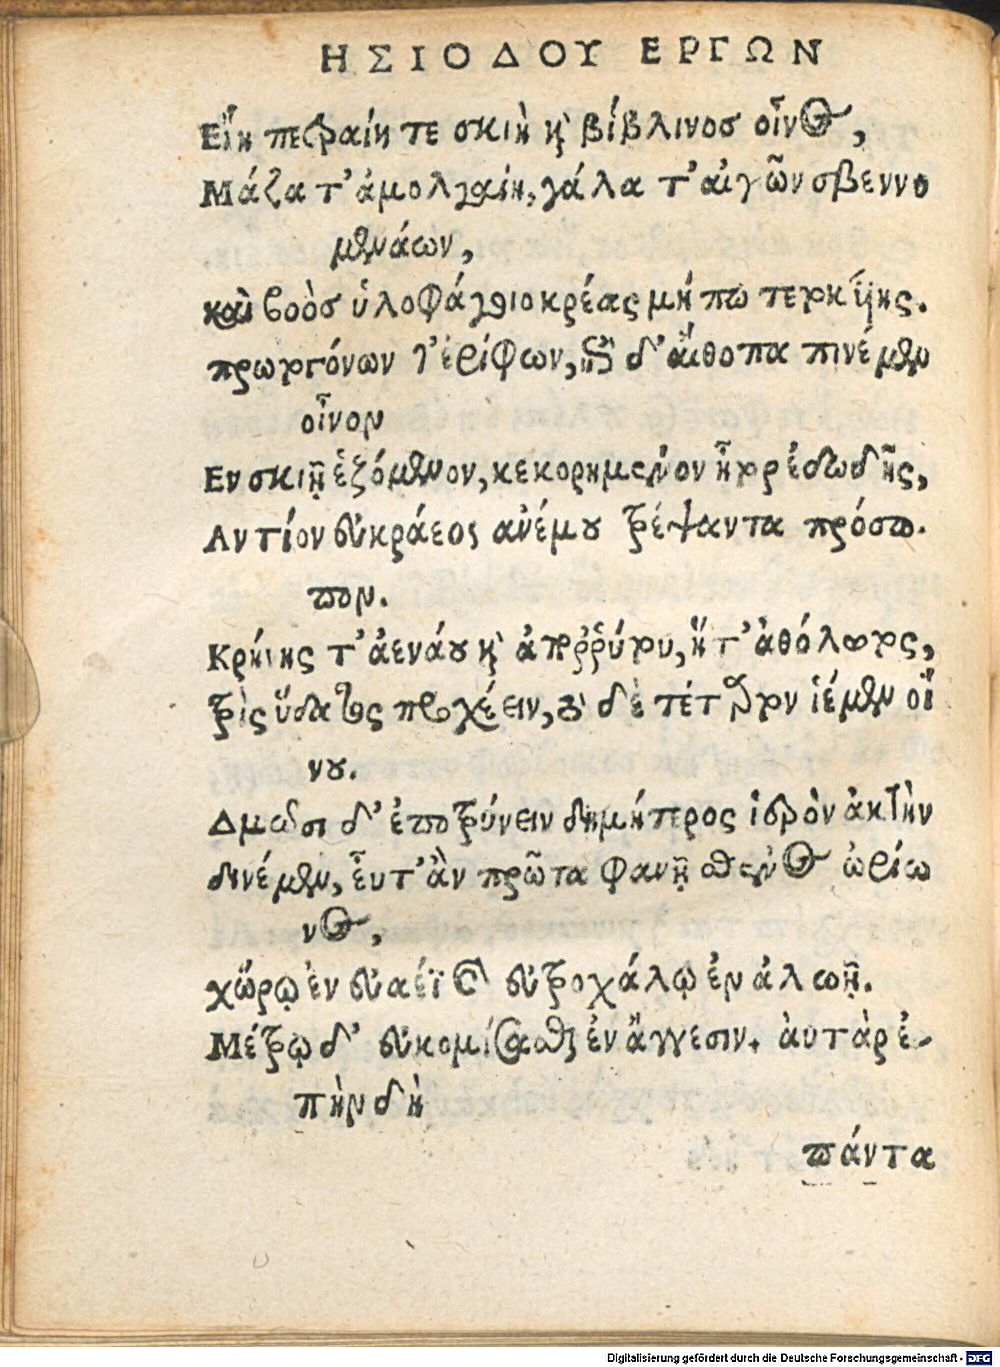 ΗΣΙΟΔΟΥ ΕΡΓΩΝ
Εἴη πετραίη τε σκιὴ κὶ βίβλινοσ οἶνος,
Μάζα τ' ἀμολγαίη, γάλα τ' αἰγῶν σβεννο
μενάων,
καὶ βοὸσ ὑλοφάγοιο κρέας μή πω τετοκυίης.
πρωτογόνων τ' ἐρίφων, ἐπὶ δ' αἴθοπα πινέμεν
οἶνον
Εν σκιῇ ἑζόμενον, κεκορημενόν ἦτορ ἐδωδῆς,
Αντίον εὐκράεος ανέμου τρέψαντα πρόσω.
πον.
Κρήνης τ' ἀενάου κὶ ἀπορρύτου, ἥ τ' ἀθόλωτος,
τρὶς ὕδατος προχέειν, τὸ δὲ τέτρατον ἱέμεν οἴ
νου.
Δμωσι δ' ἐποτρύνειν δημήτερος ἱερὸν ἀκτὴν
δινέμεν, εὖτ' ἂν πρῶτα φανῇ σθενος ὠρίω
νος,
χώρῳ ἐν εὐαέϊ καὶ εὐτροχάλῳ ἐν ἀλωῇ.
Μέτρῳ δ' εὐκομίσασθαι ἐν ἄγγεσιν. ἀυτὰρ ἐ-
πὴν δὴ
πάντα
Digitalisierung gefördert durch die Deutsche Forschungsgemeinschaft - DFG